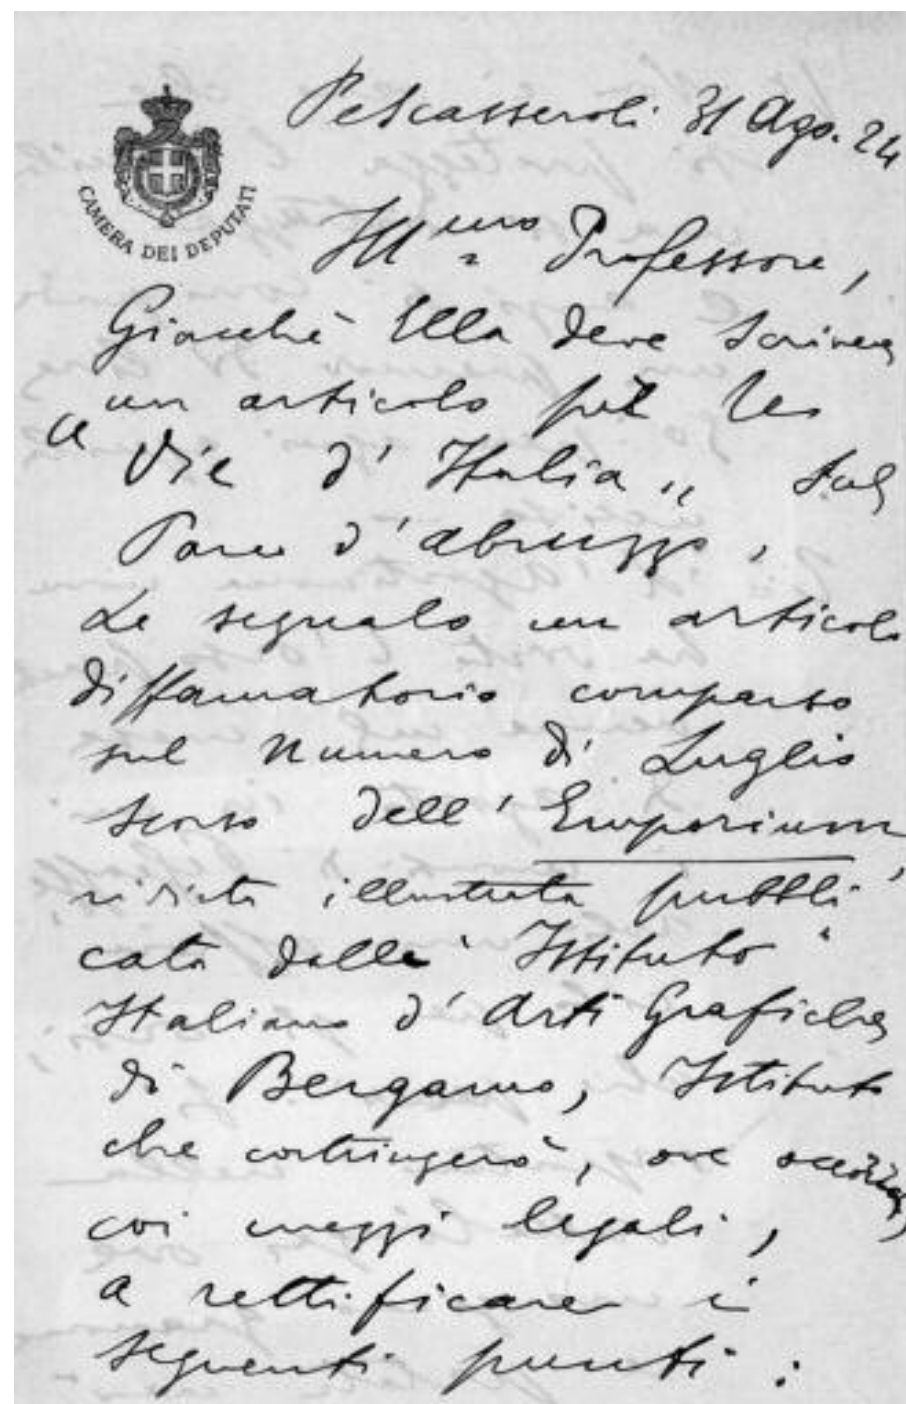 Pescasseroli 31 Ago. 24
CAMERA DEI DEPUTATI
Ill.mo Professore,
Giacchè Ella deve scrivere
un articolo per le
"Vie d'Italia" sul
Parco d'Abruzzo,
Le segnalo un articolo
diffamatorio comparso
sul Numero di Luglio
scorso dell'Emporium,
rivista illustrata pubbli
cata dalle "Istituto
Italiano d'Arti Grafiche
di Bergamo, Istituto
che costringerò, ove occorra,
coi mezzi legali,
a rettificare i
seguenti punti: